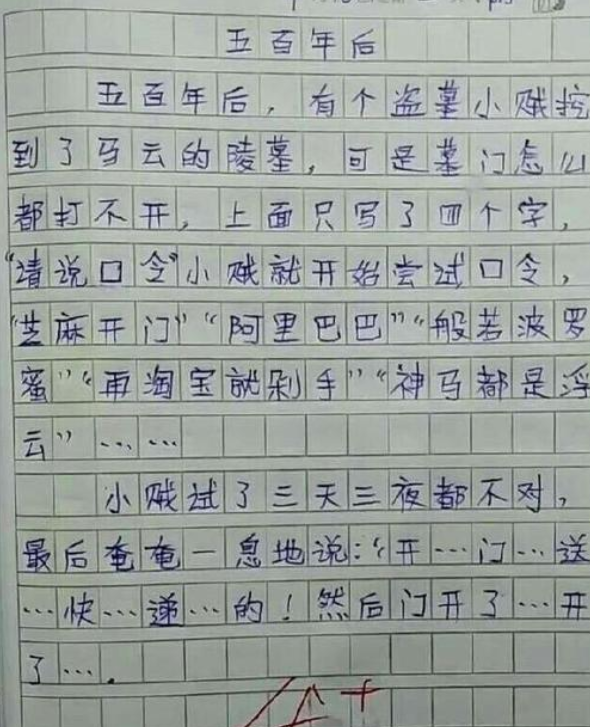 五百年后
五百年后，有个盗墓小贼挖
到了马云的陵墓，可是墓门怎么
都打不开，上面只写了四个字，
“请说口令”小贼就开始尝试口令，
“芝麻开门”“阿里巴巴”“般若波罗
蜜”“再淘宝就剁手”“神马都是浮
云”……
小贼试了三天三夜都不对，
最后奄奄一息地说：“开…门…送
…快…递…的！然后门开了…开
了….
A+